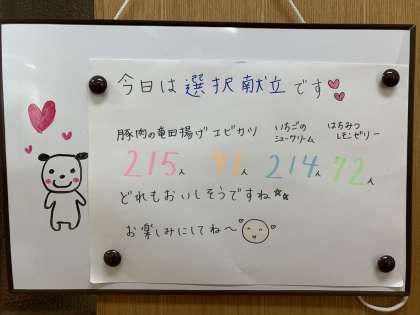 今日は選択献立です
豚肉の竜田揚げ エビカツ いちごのシュークリーム はちみつレモンゼリー
215人 71人 214人 72人
どれもおいしそうですね
お楽しみにしてね〜